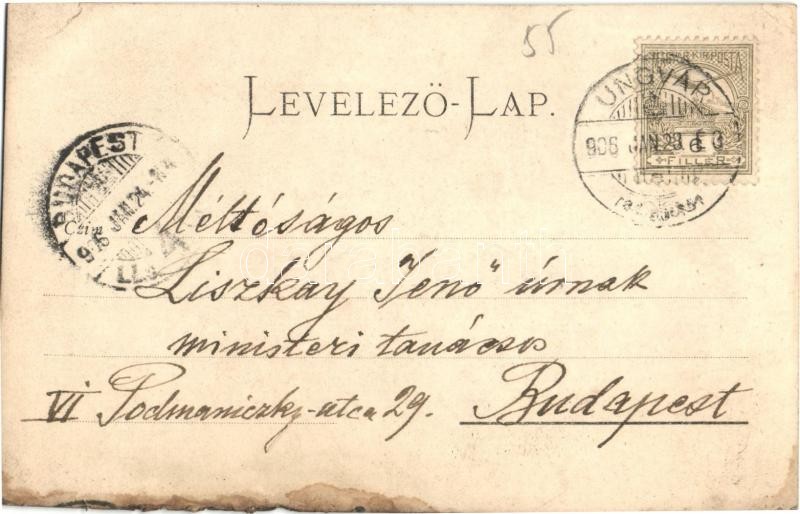 55
LEVELEZŐ-LAP.
MAGYAR KIR. POSTA
6
FILLÉR
UNGVÁR
906 JAN. 23
BUDAPEST
906 JAN. 24
Czim
Méltóságos
Liszkay Jenő úrnak
ministeri tanácsos
VI Podmaniczky-utca 29. Budapest